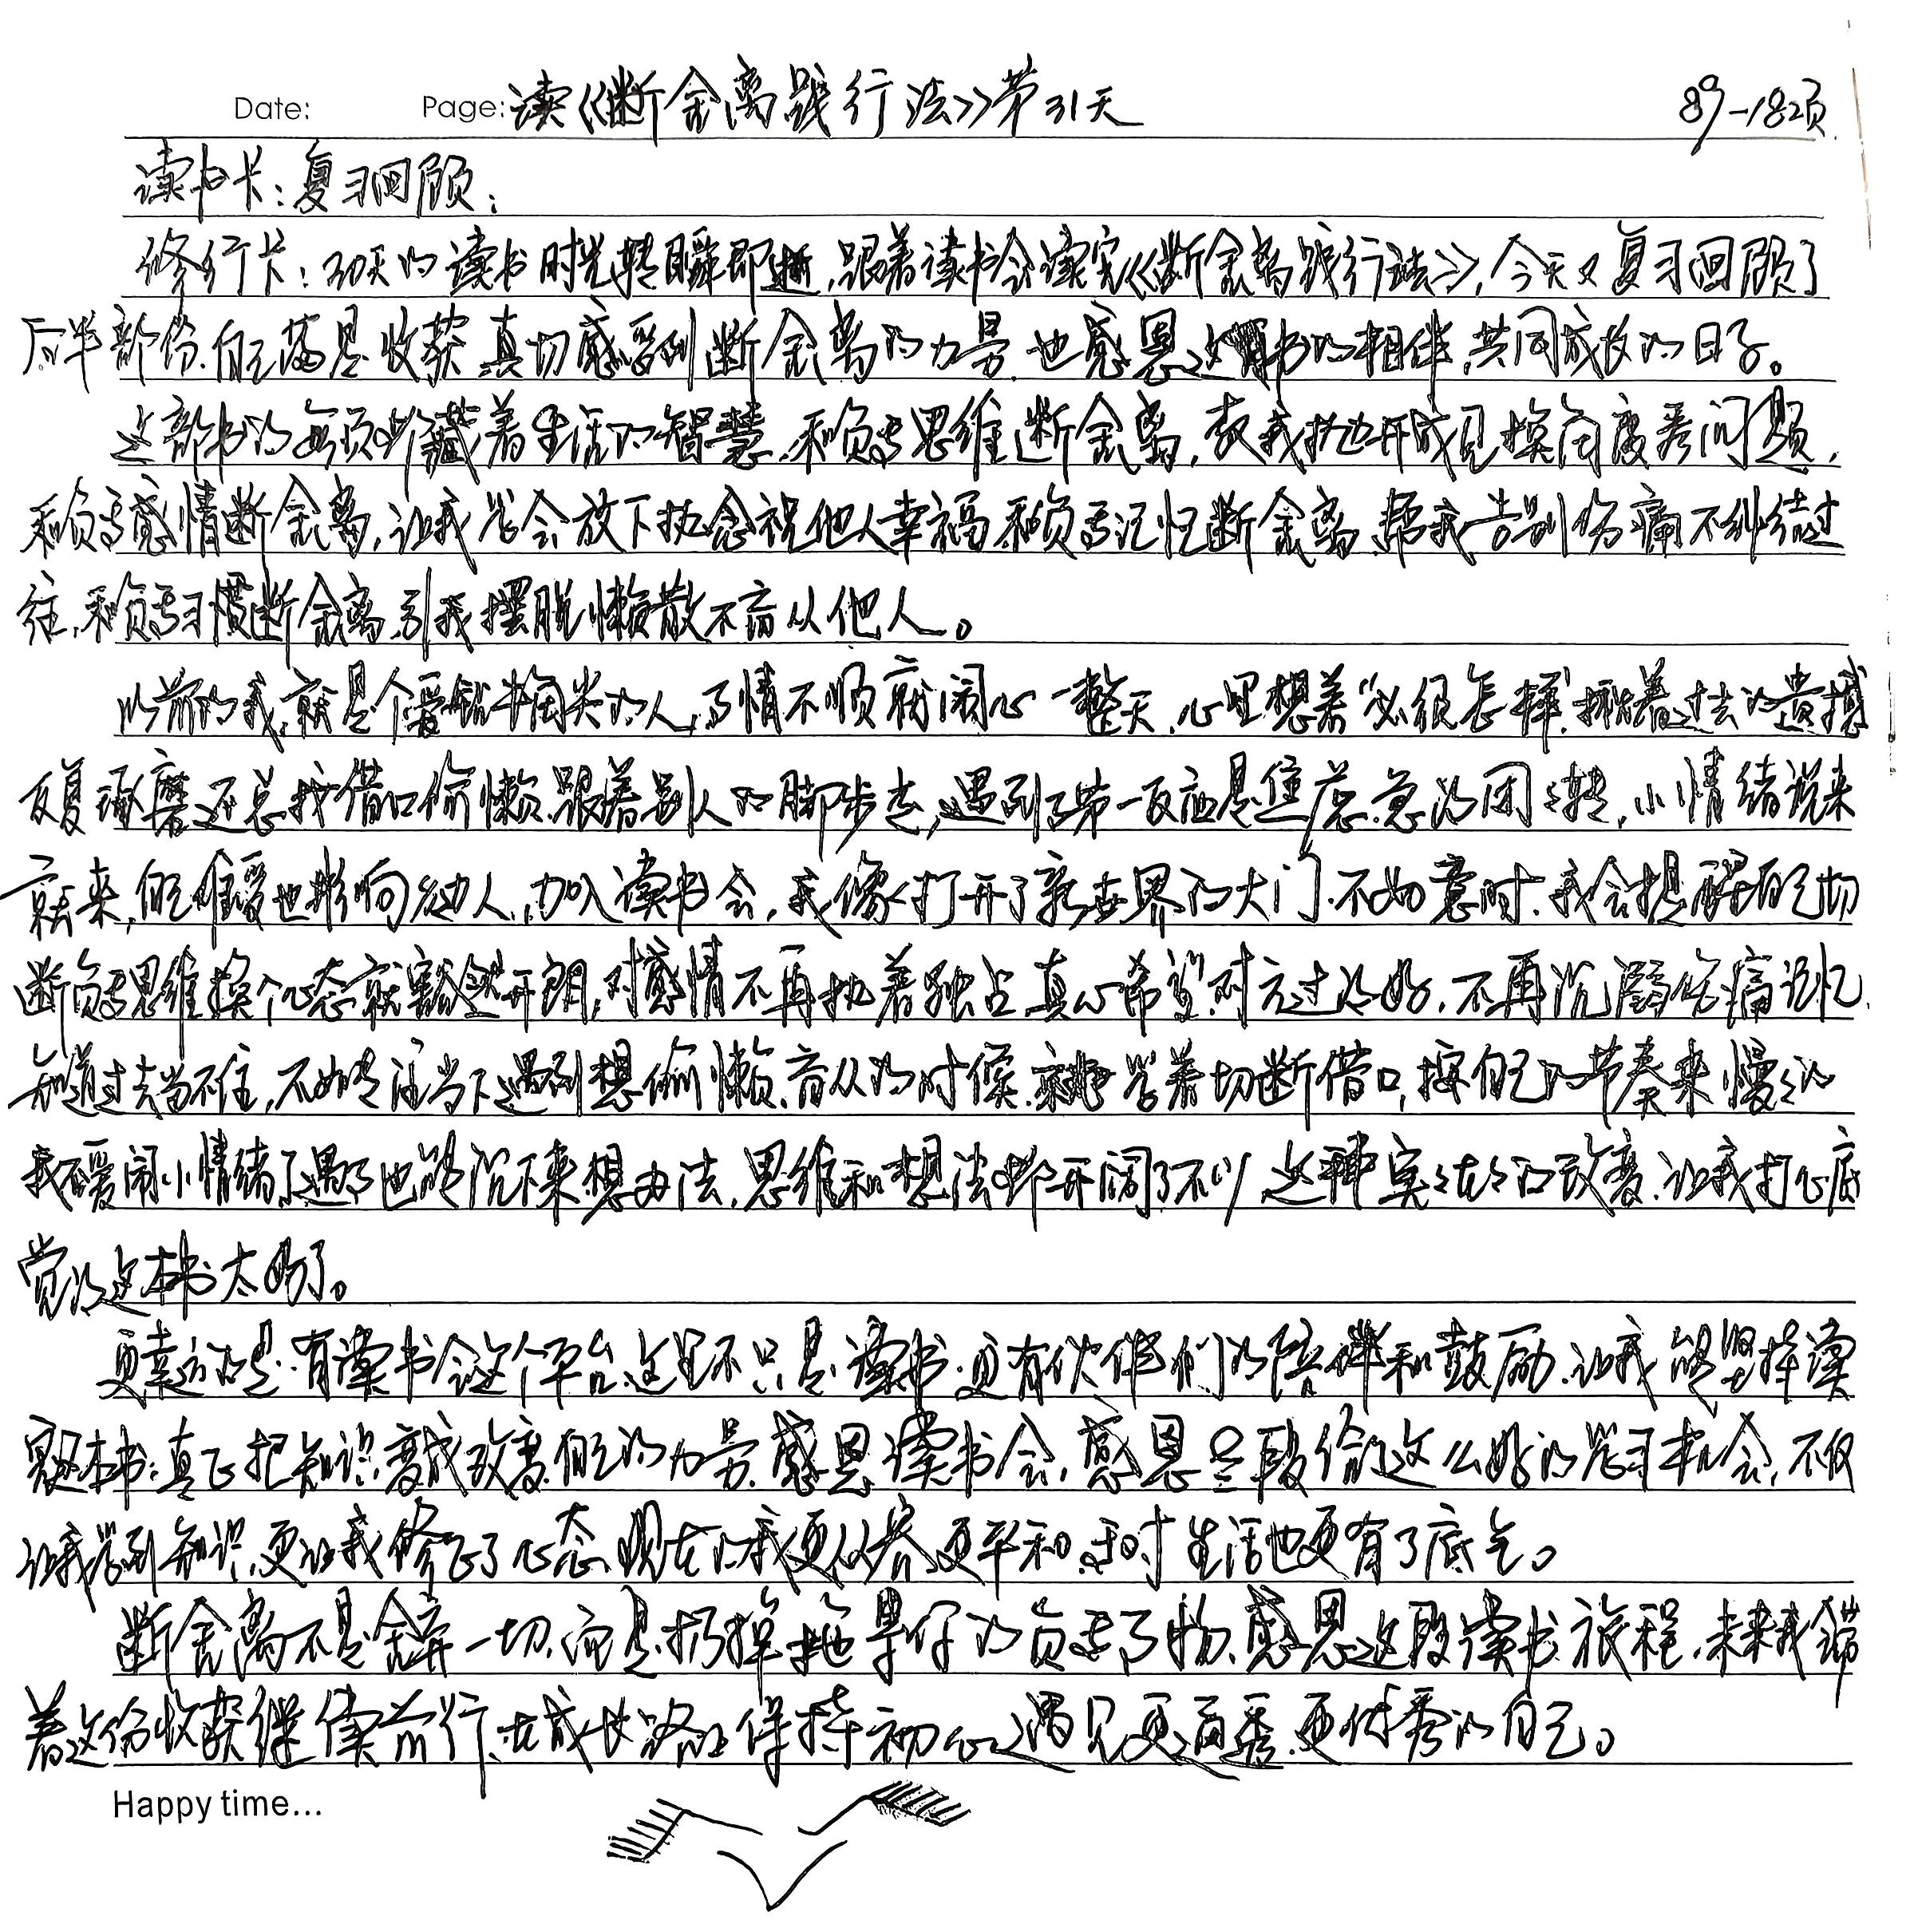 Date: Page: 读《断舍离践行法》第31天 89-182页
读书卡：复习回顾：
修行卡：30天的读书时光转瞬即逝，跟着读书会读完《断舍离践行法》，今天又复习回顾了
后半部份，自己满是收获，真切感受到断舍离的力量，也感恩这期书的相伴，共同成长的日子。
这部书的每页都藏着生活的智慧，和负与思维断舍离，教我抛开成见换角度看问题，
和负与感情断舍离，让我学会放下执念祝他人幸福，和负与记忆断舍离，帮我告别伤痛不纠结过
往，和负与习惯断舍离，引我摆脱懒散不盲从他人。
以前的我，就是个爱钻牛角尖的人，事情不顺就闹心一整天，心里想着“必须怎样”，揪着过去的遗憾
反复琢磨，还总找借口偷懒，跟着别人的脚步走，遇到事第一反应是焦虑，急的团团转，小情绪说来
就来，自己难受也影响别人，加入读书会，我像打开了新世界的大门，不如意时，我会提醒自己切
断负与思维，换个心态就豁然开朗，对感情不再执着独占，真心希望对方过的好，不再沉溺伤痛记忆，
知道过去留不住，不如专注当下，遇到想偷懒、盲从的时候，就学着切断借口，按自己的节奏来，慢慢的
我不爱闹小情绪了，遇事也能沉下来想办法，思维和想法都开阔了不少，这种实实在在的改变，让我打心底
觉的这本书太好了。
更幸运的是，有读书会这个平台，这里不只是读书，更有伙伴们的陪伴和鼓励，让我能坚持读
完这本书，真正把知识变成改变自己的力量，感恩读书会，感恩 给这么好的学习机会，不仅
让我学到知识，更让我修正了心态，现在的我更从容、更平和，对生活也更有了底气。
断舍离不是舍弃一切，而是扔掉拖累你的负与事物，感恩这段读书旅程，未来我会带
着这份收获继续前行，在成长路上保持初心，遇见更通透、更优秀的自己。
Happy time...